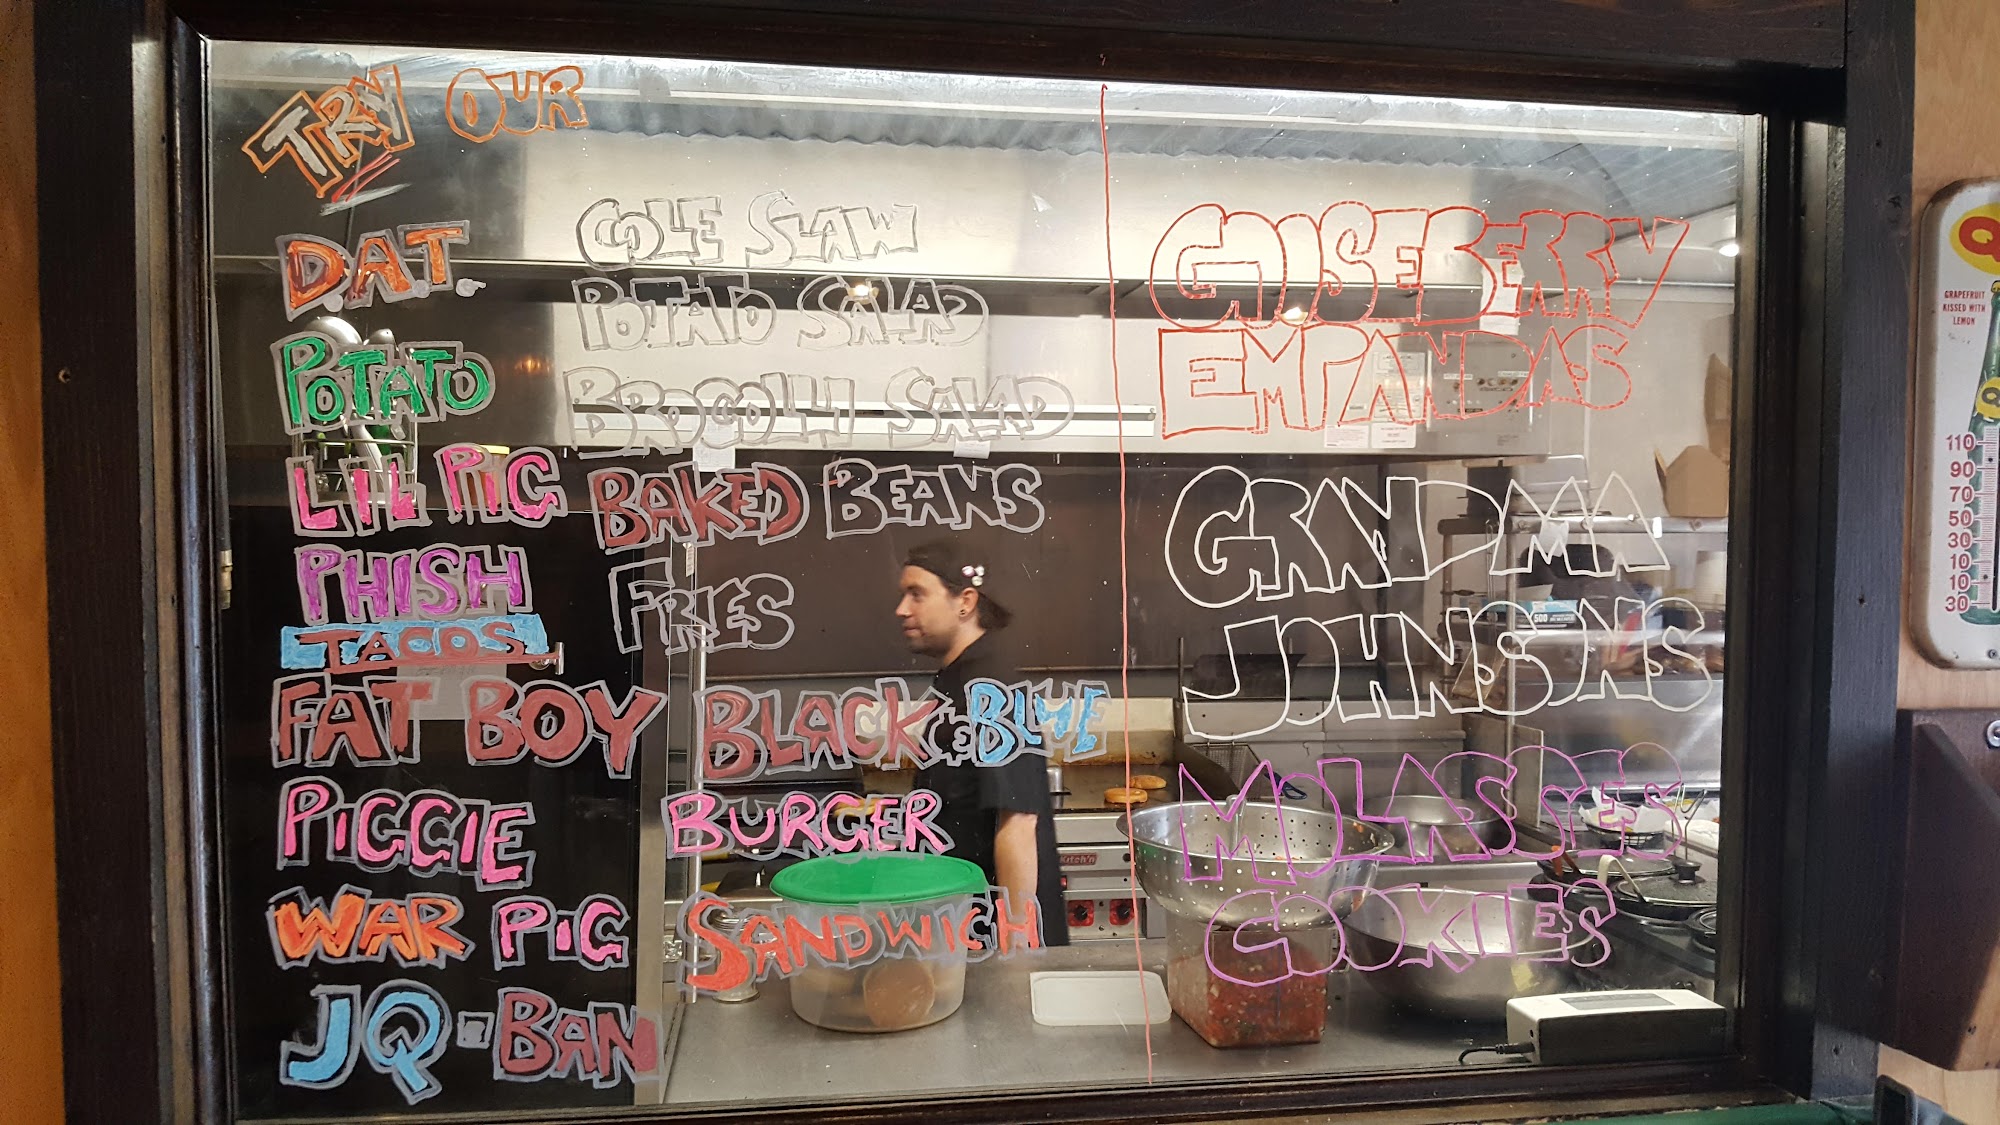 TRY OUR
D.A.T.
POTATO
LIL PIG
PHISH
TACOS
FAT BOY
PIGGIE
WAR PIG
JQ-BAN
COLE SLAW
POTATO SALAD
BROCOLLI SALAD
BAKED BEANS
FRIES
BLACK & BLUE
BURGER
SANDWICH
GOOSEBERRY
EMPANDAS
GRANDMA
JOHNSONS
MOLASSES
COOKIES
Kitch'n
500
Q
GRAPEFRUIT
KISSED WITH
LEMON
Q
110
90
70
50
30
10
10
30